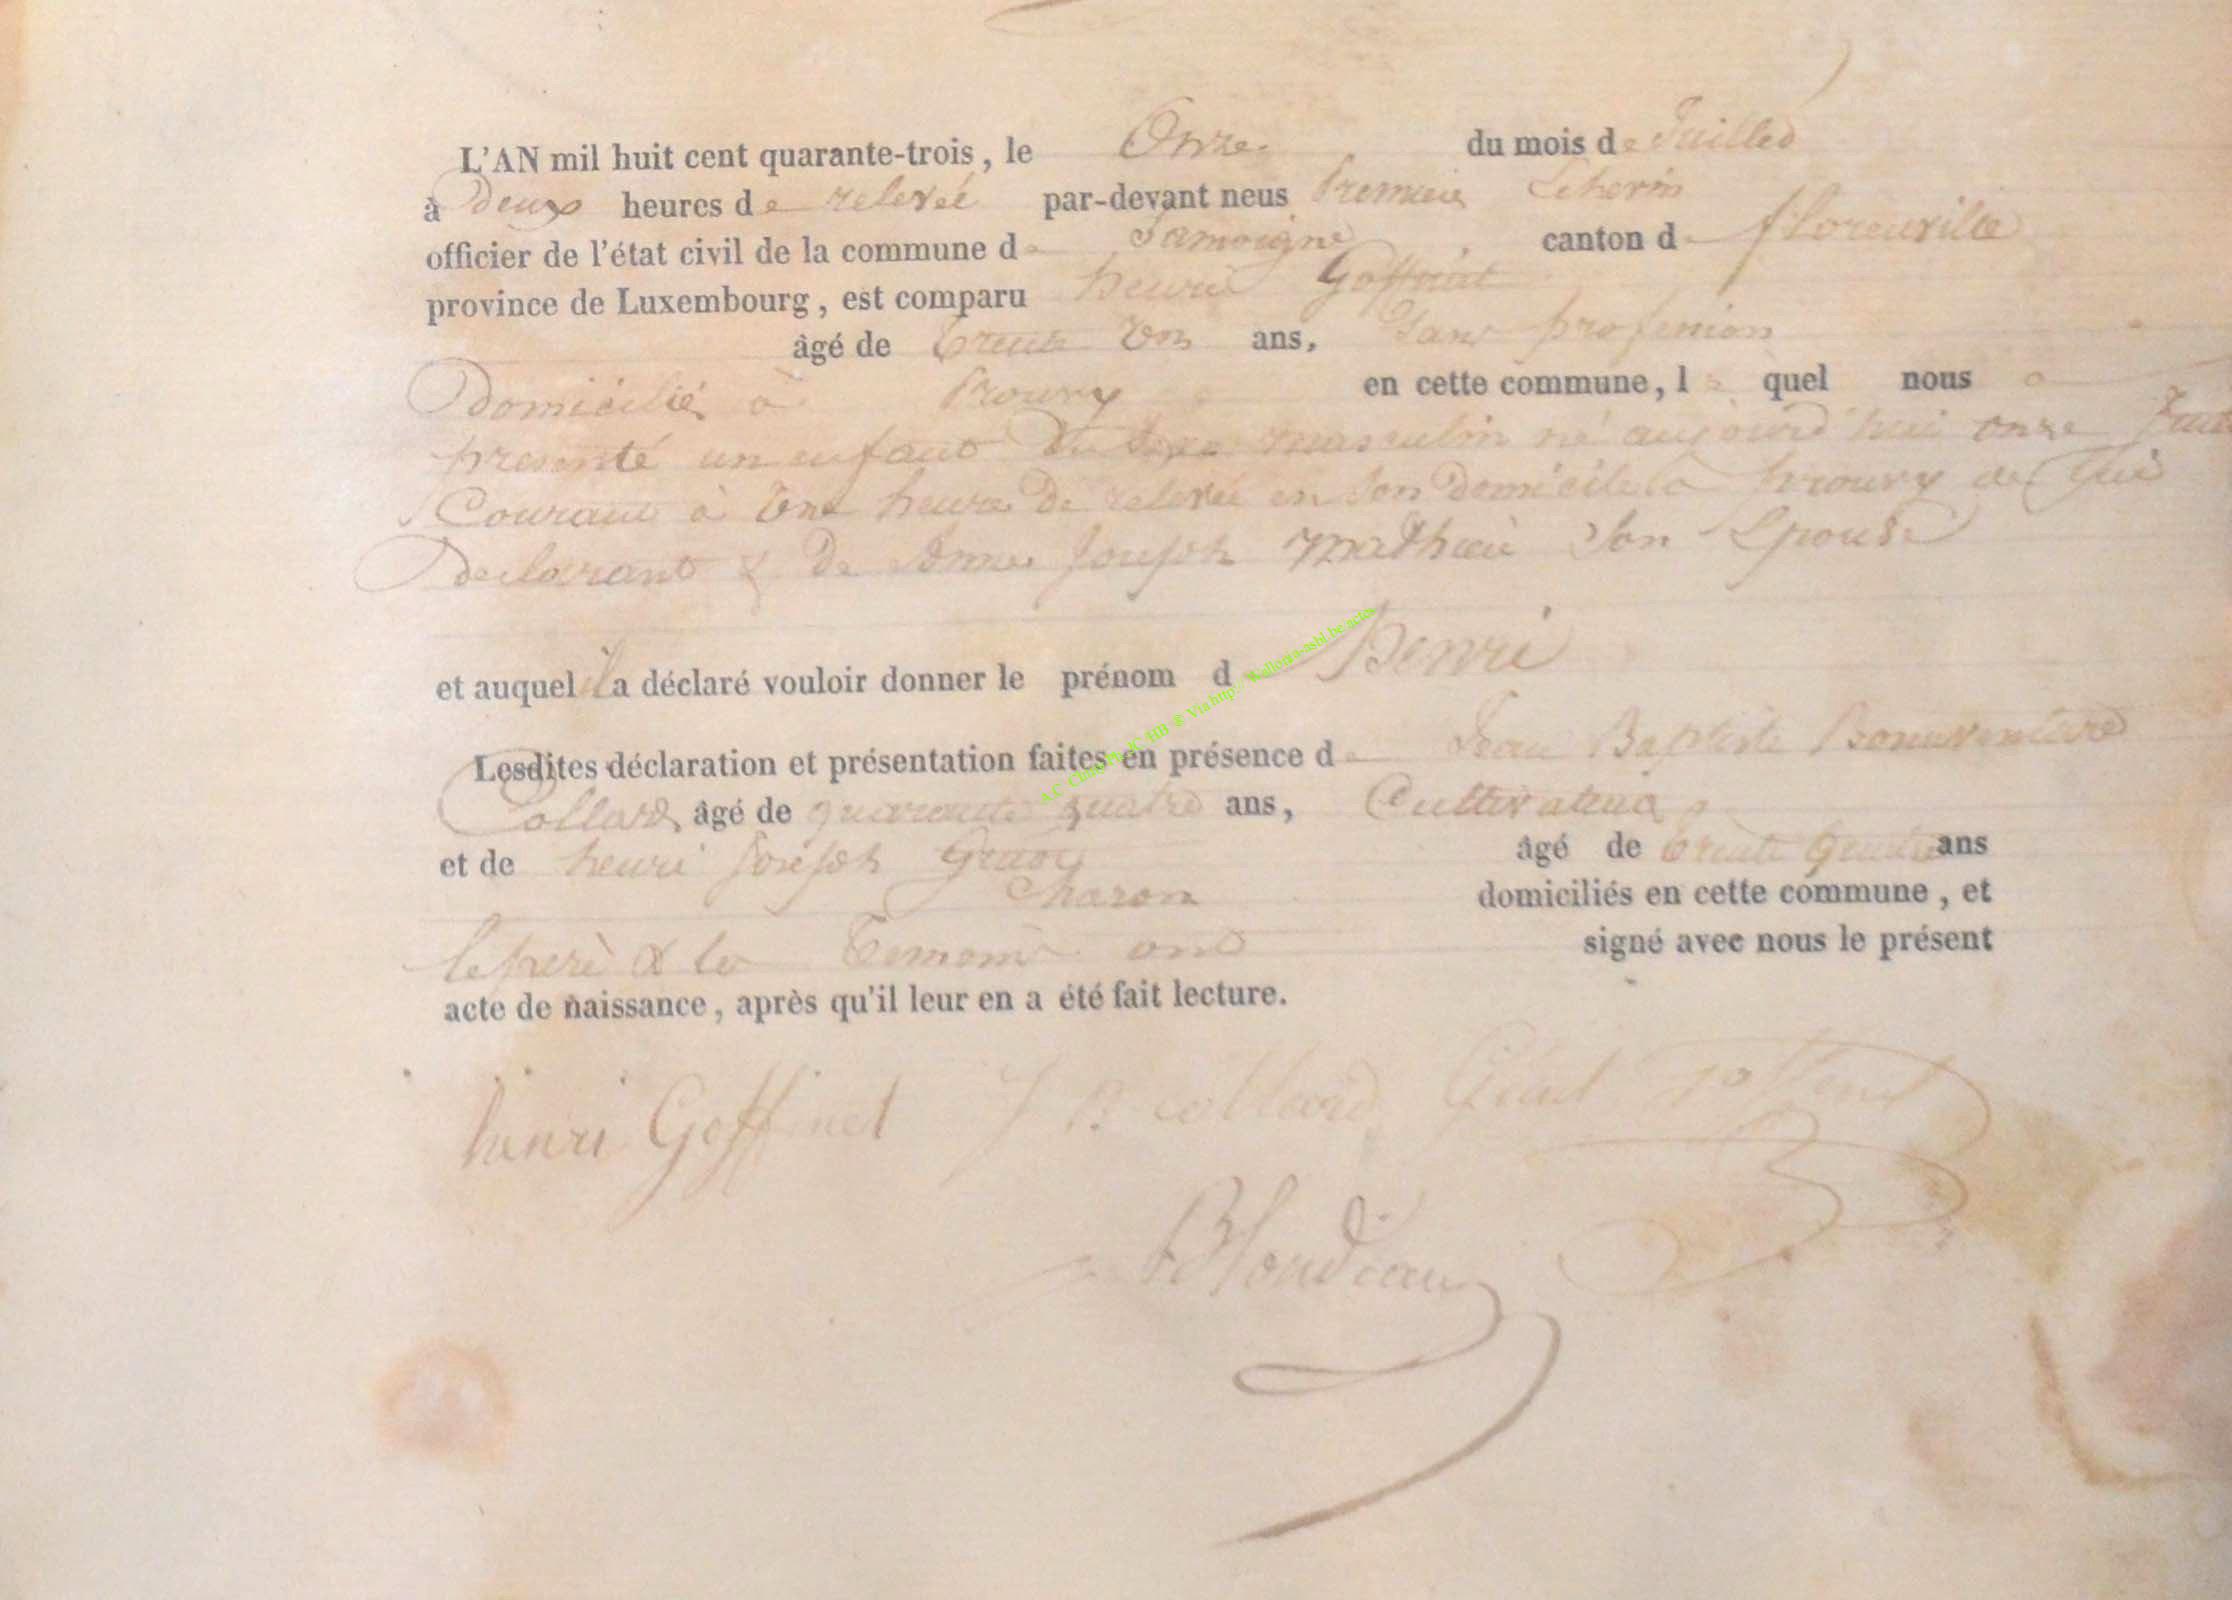 L'AN mil huit cent quarante-trois, le Onze du mois de Juillet
à Deux heures de relevée par-devant nous Premier Echevin
officier de l'état civil de la commune de Jamoigne canton de florenville
province de Luxembourg, est comparu henri Goffinet
âgé de trente un ans, sans profession
Domicilié à Prouvy en cette commune, lequel nous a
presenté un enfant du sexe masculin né aujourd'hui onze
Courant à une heure de relevée en son domicile à prouvy de lui
Declarant & de Anne Joseph Mathieu son Epouse
et auquel il a déclaré vouloir donner le prénom d Henri
Lesdites déclaration et présentation faites en présence de Jean Baptiste Bonaventure
Collard âgé de quarante quatre ans, Cultivateur
et de henri Joseph âgé de trente quatre ans
Charon domiciliés en cette commune, et
le pere & les Temoins ont signé avec nous le présent
acte de naissance, après qu'il leur en a été fait lecture.
henri Goffinet J B collard
Blondiau